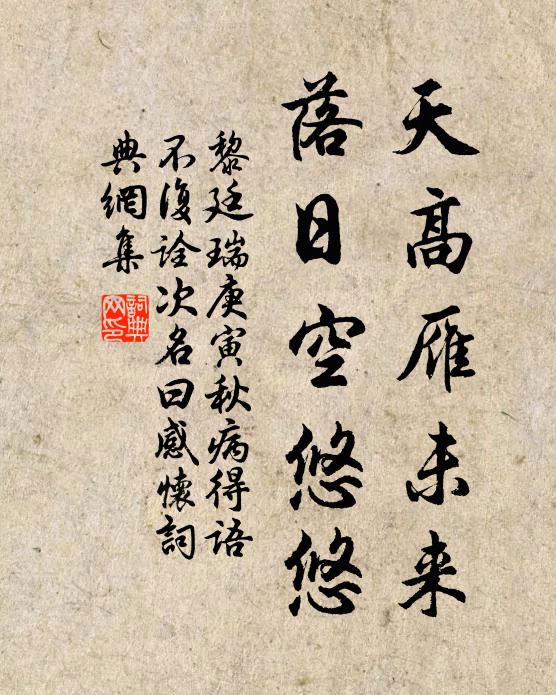 天高雁未来
落日空悠悠
黎廷瑞庚寅秋病得语
不復诠次名曰感懷詞
典網集
詞典網印